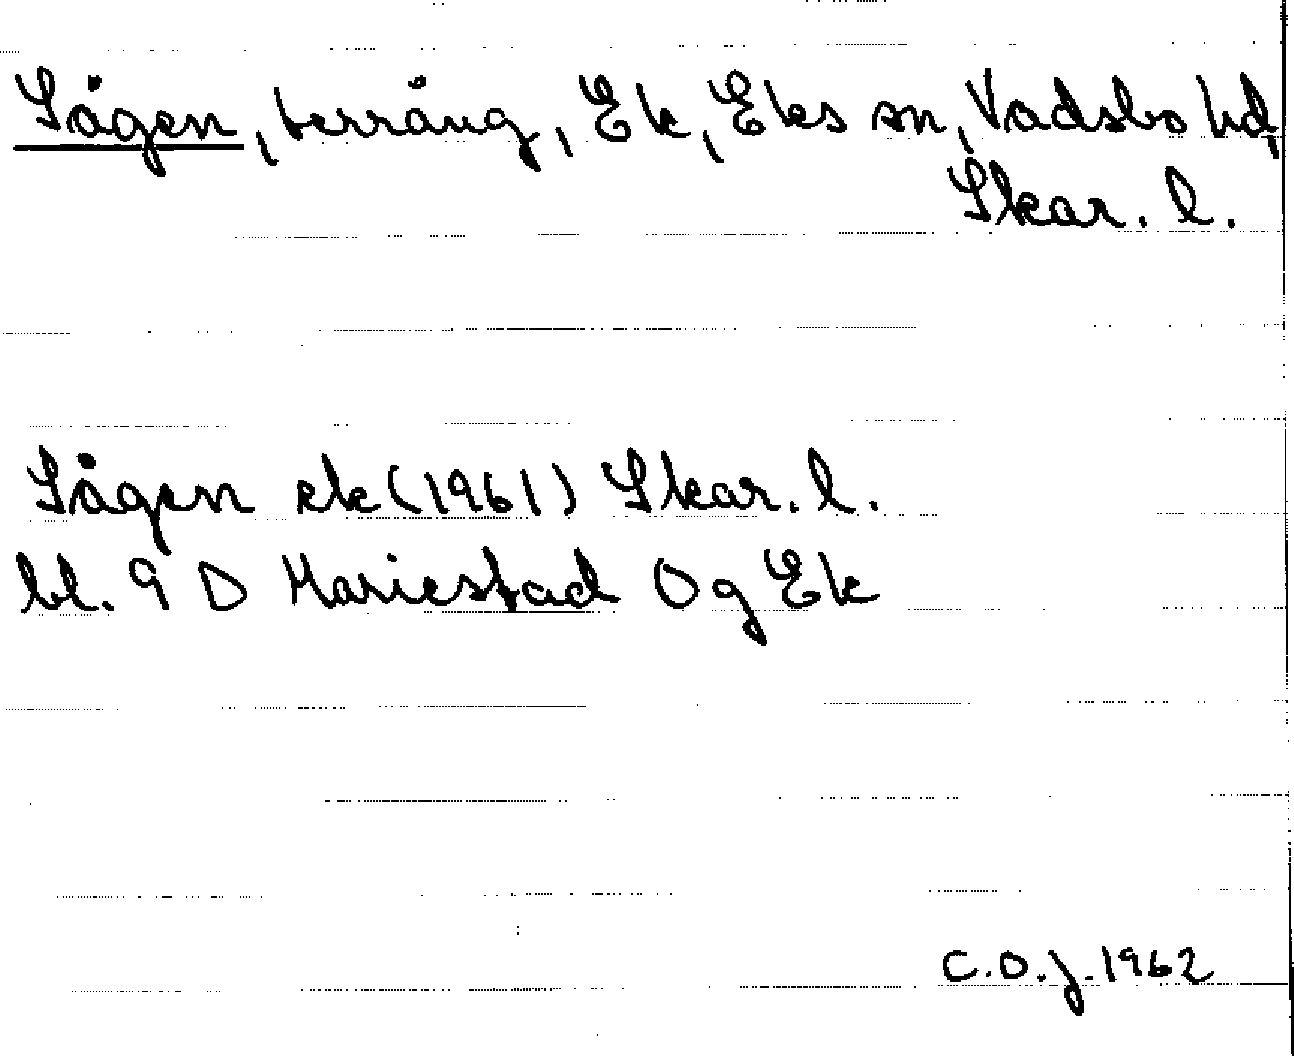 Sågen, terräng, Ek, Eks sn, Vadsbo hd,
Skar. l.
Sågen ek (1961) Skar. l.
bl. 9 D Mariestad 0 g Ek
C.O.J. 1962